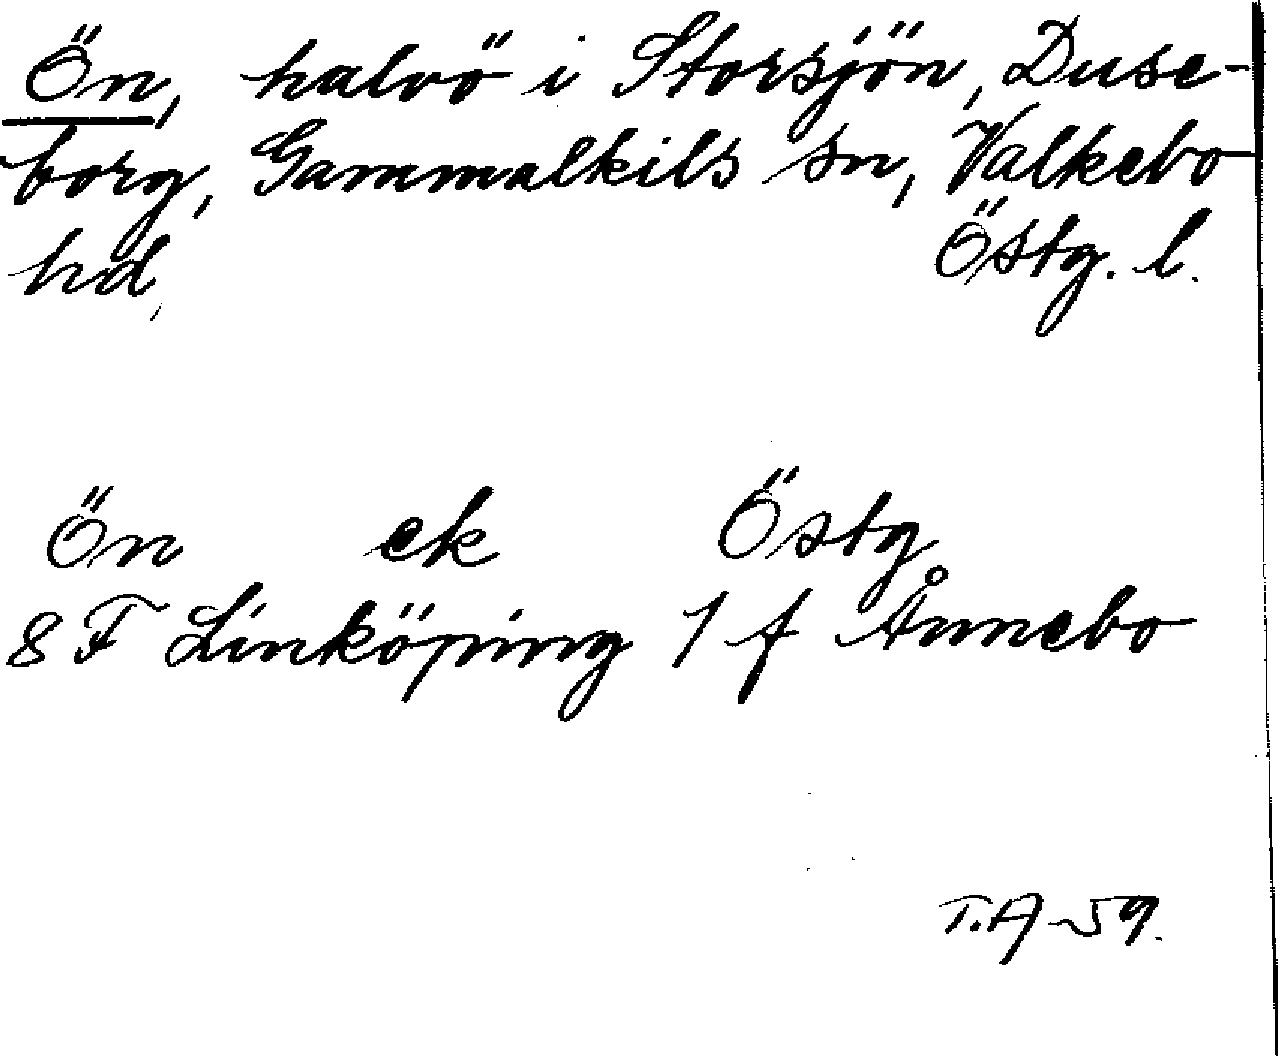 Ön, halvö i Storsjön, Duse-
borg, Gammalkils sn, Valkebo
hd, Östg. l.
Ön ek Östg
8 F Linköping 1 f Ånnebo
T.A-59.